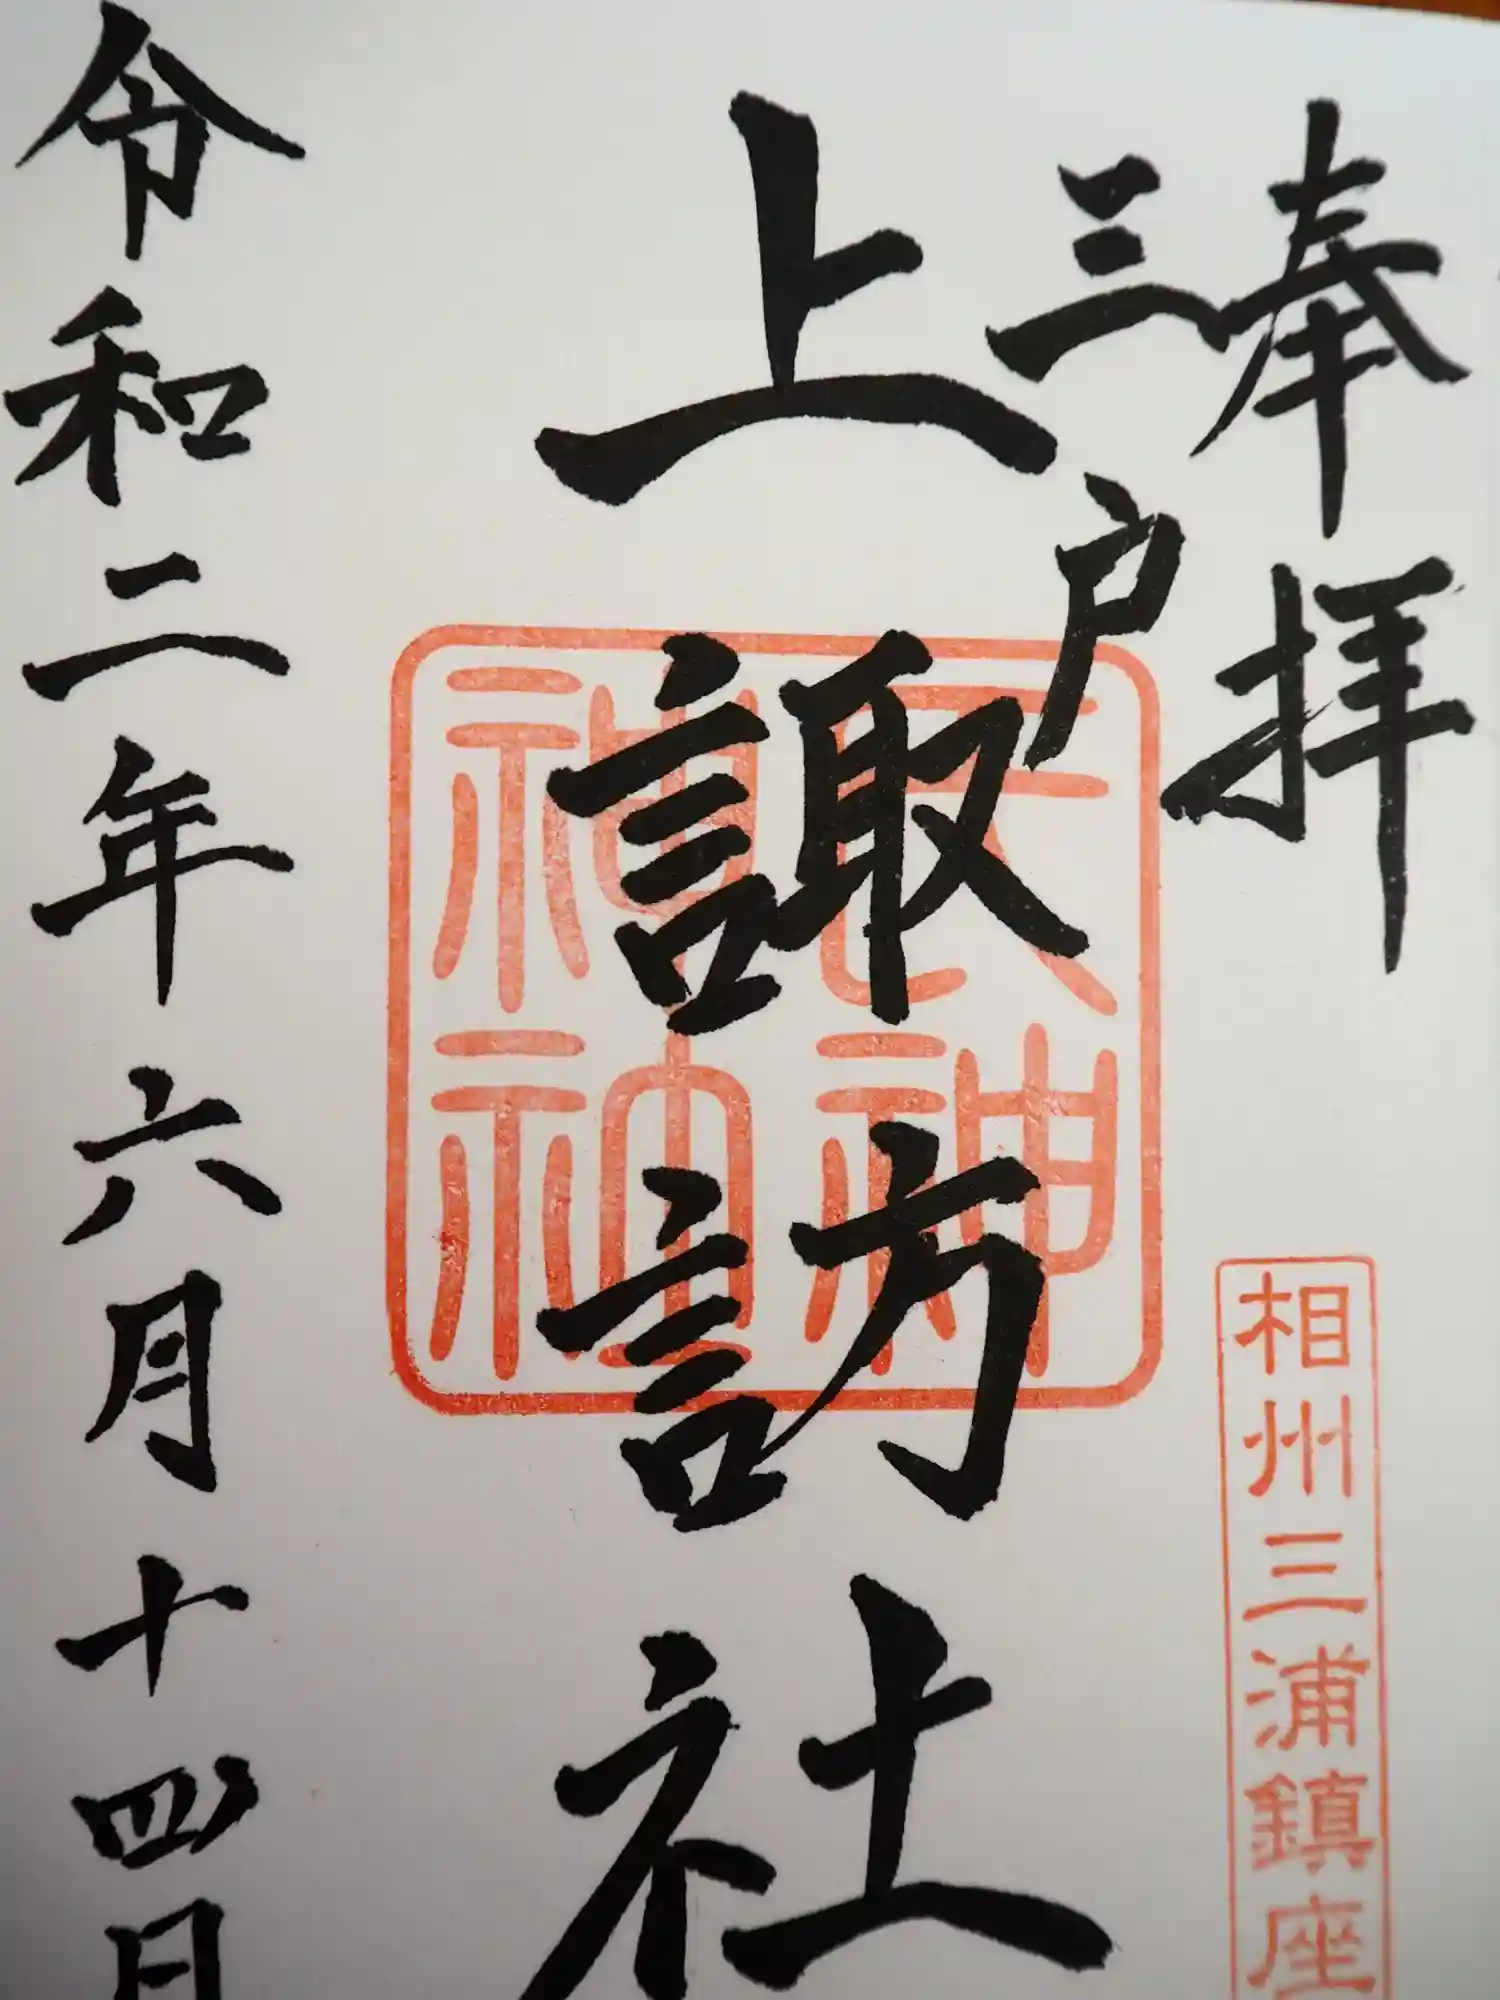 奉拝
相州三浦鎮座
三戸
上諏訪社
天神
神社
令和二年六月十四日